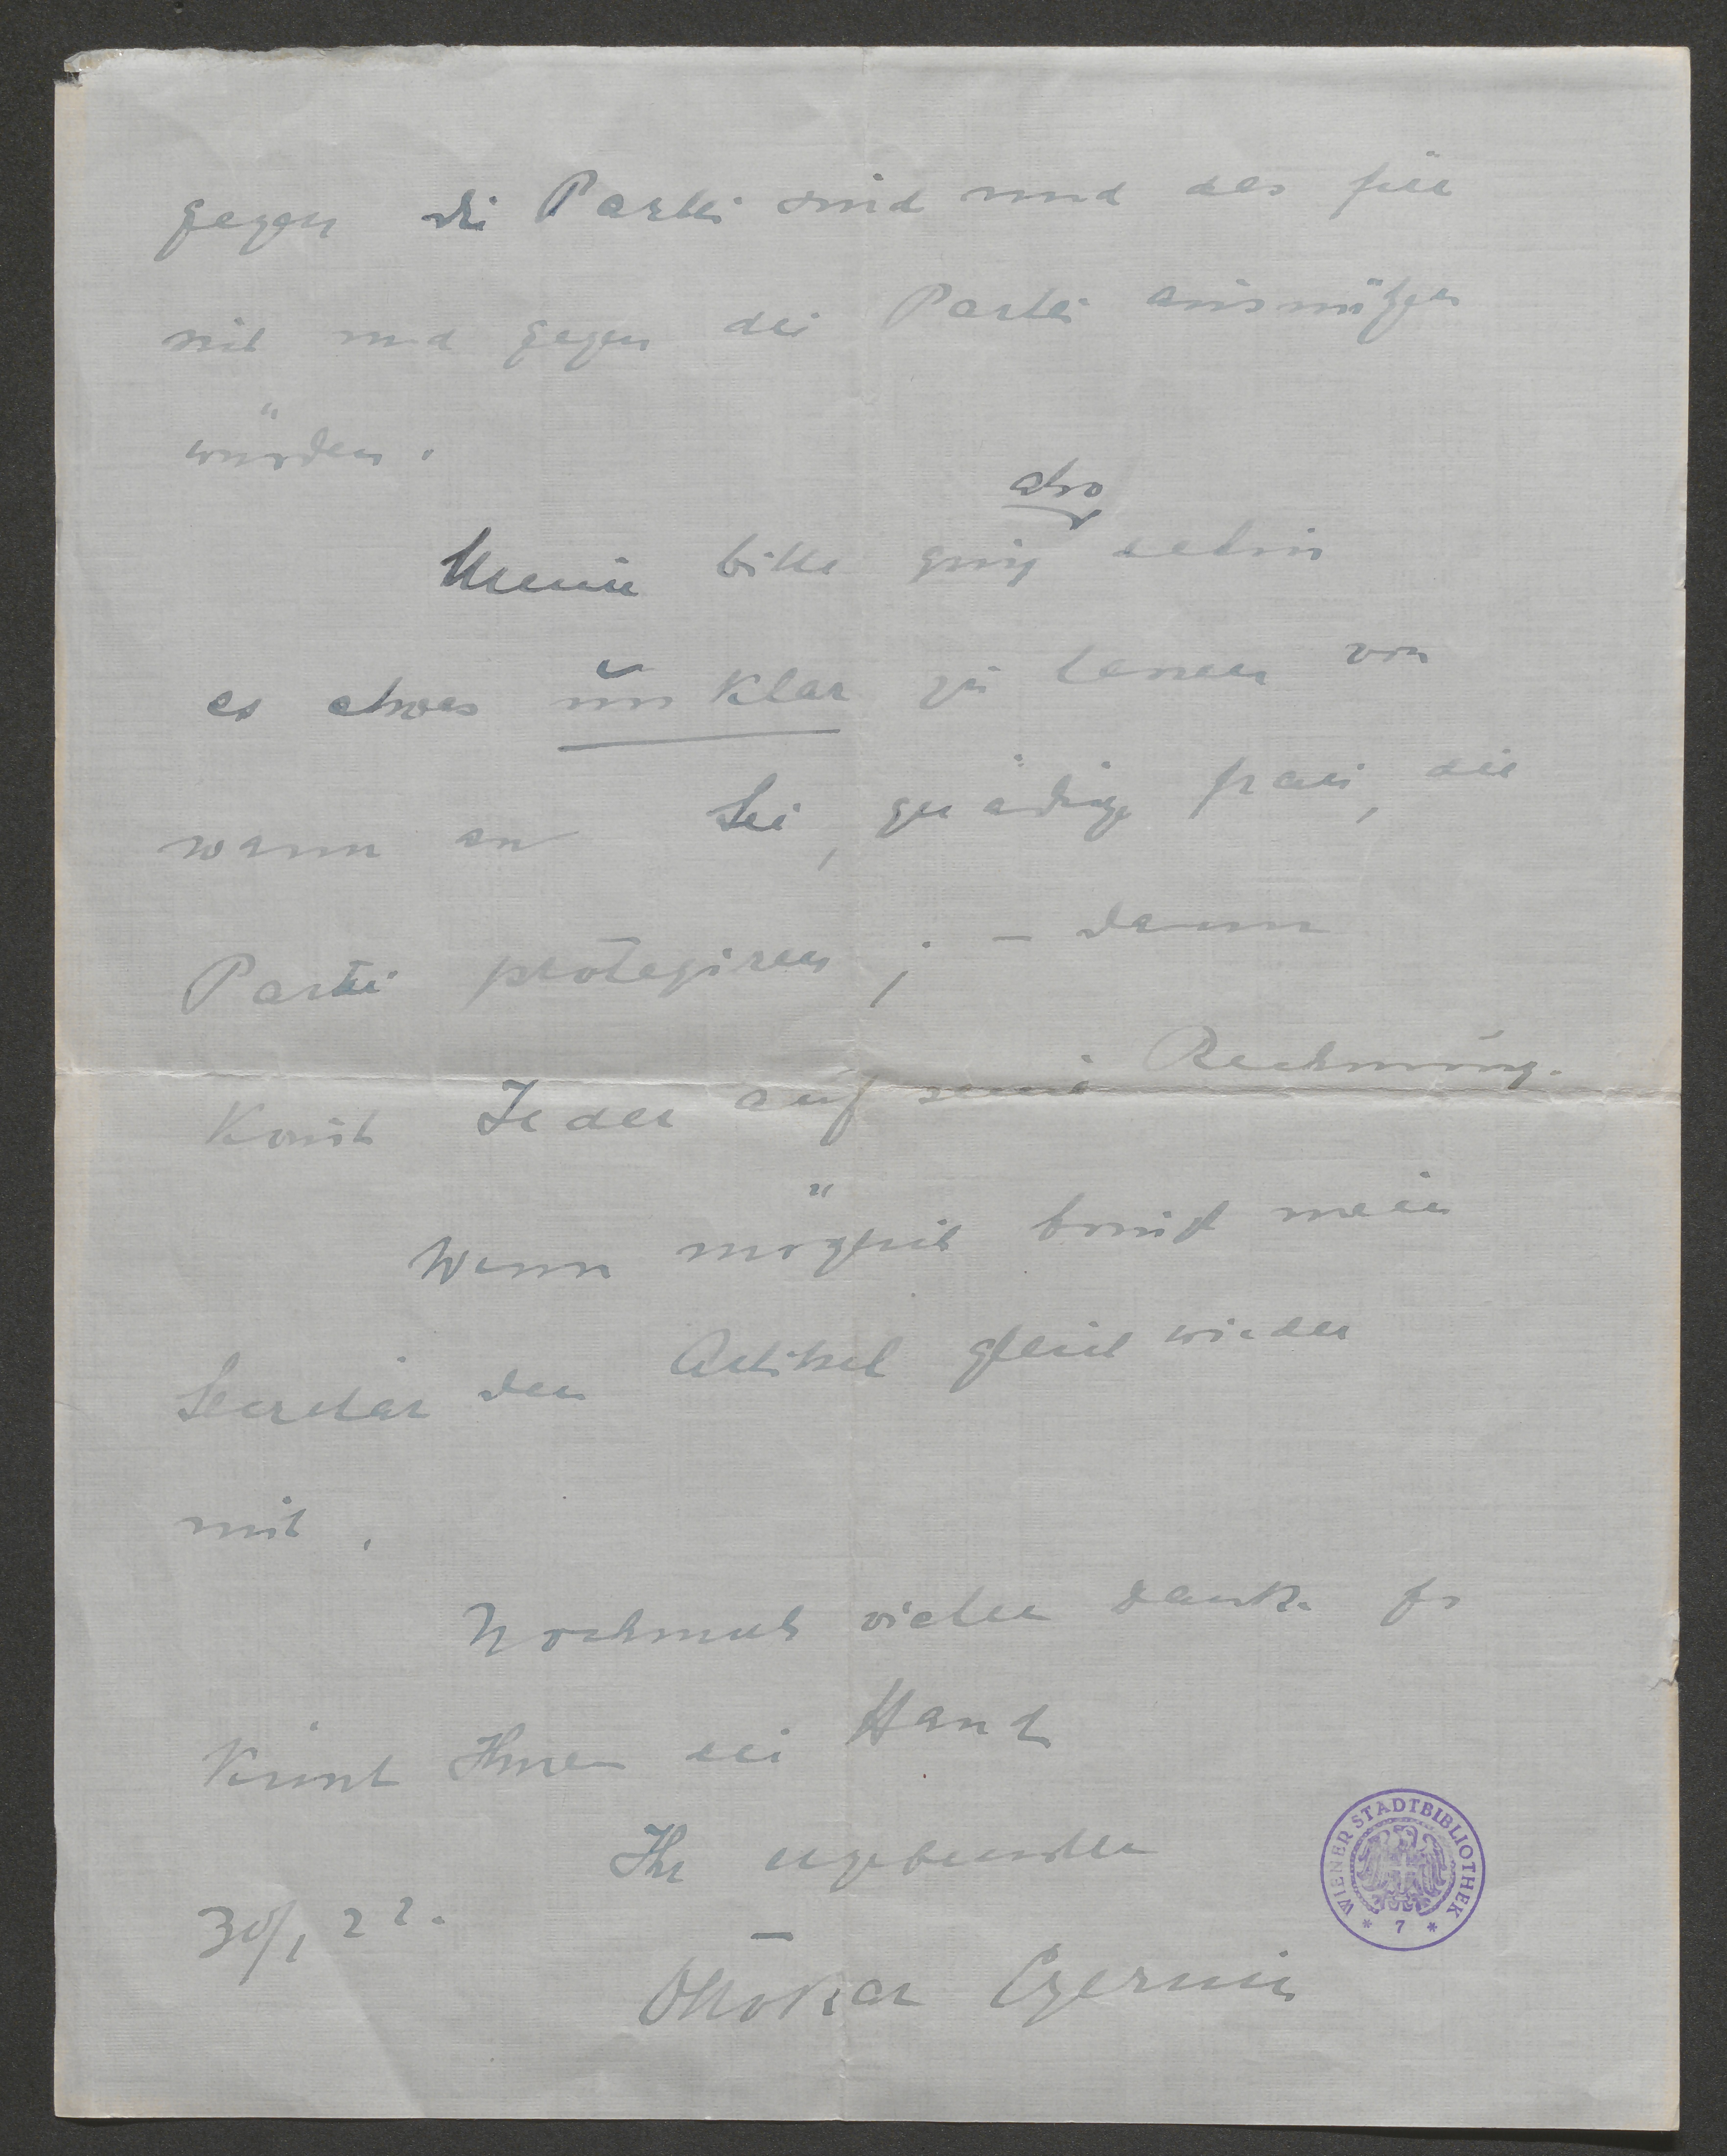 gegen die Partei sind und das für
mich und gegen die Partei ausnützen
würden.
also
Meine bitte ging dahin
es etwas unklar zu lassen von
wann an Sie, gnädige frau, die
Partei protegiren; – dann
komt Jeder auf seine Rechnung.
Wenn möglich bringt mein
Secretär den Artikel gleich wieder
mit.
Nochmals vielen Dank. Es
küsst Ihnen die Hand
Ihr ergebenster
30/1 22.
Ottokar Czernin
WIENER STADTBIBLIOTHEK
* 7 *